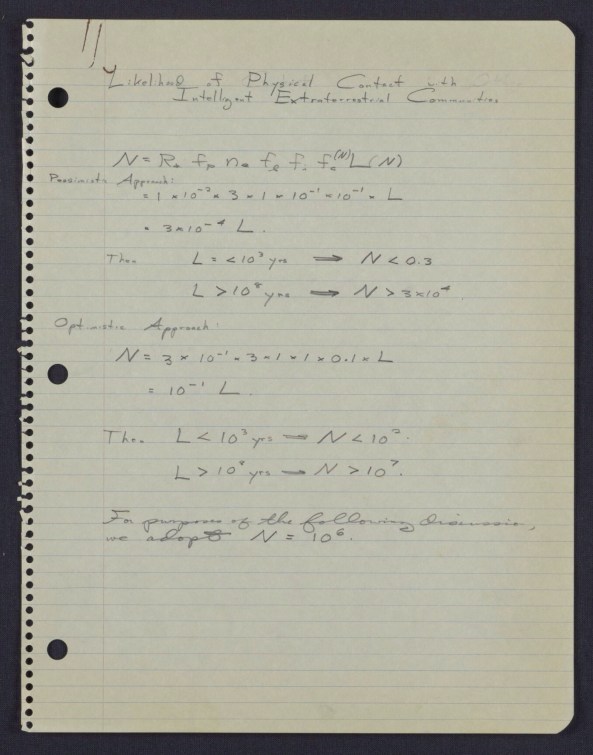 Likelihood of Physical Contact with
Intelligent Extraterrestrial Communities
N = R* fp ne fl fi fc(N) L(N)
Pessimistic Approach:
= 1 × 10⁻² × 3 × 1 × 10⁻¹ × 10⁻¹ × L
= 3×10⁻⁴ L.
Then L = <10³ yrs ⟹ N < 0.3
L > 10⁸ yrs ⟹ N > 3×10⁴.
Optimistic Approach:
N = 3 × 10⁻¹ × 3 × 1 × 1 × 0.1 × L
= 10⁻¹ L.
Then L < 10³ yrs ⟹ N < 10².
L > 10⁸ yrs ⟹ N > 10⁷.
For purposes of the following discussion,
we adopt N = 10⁶.